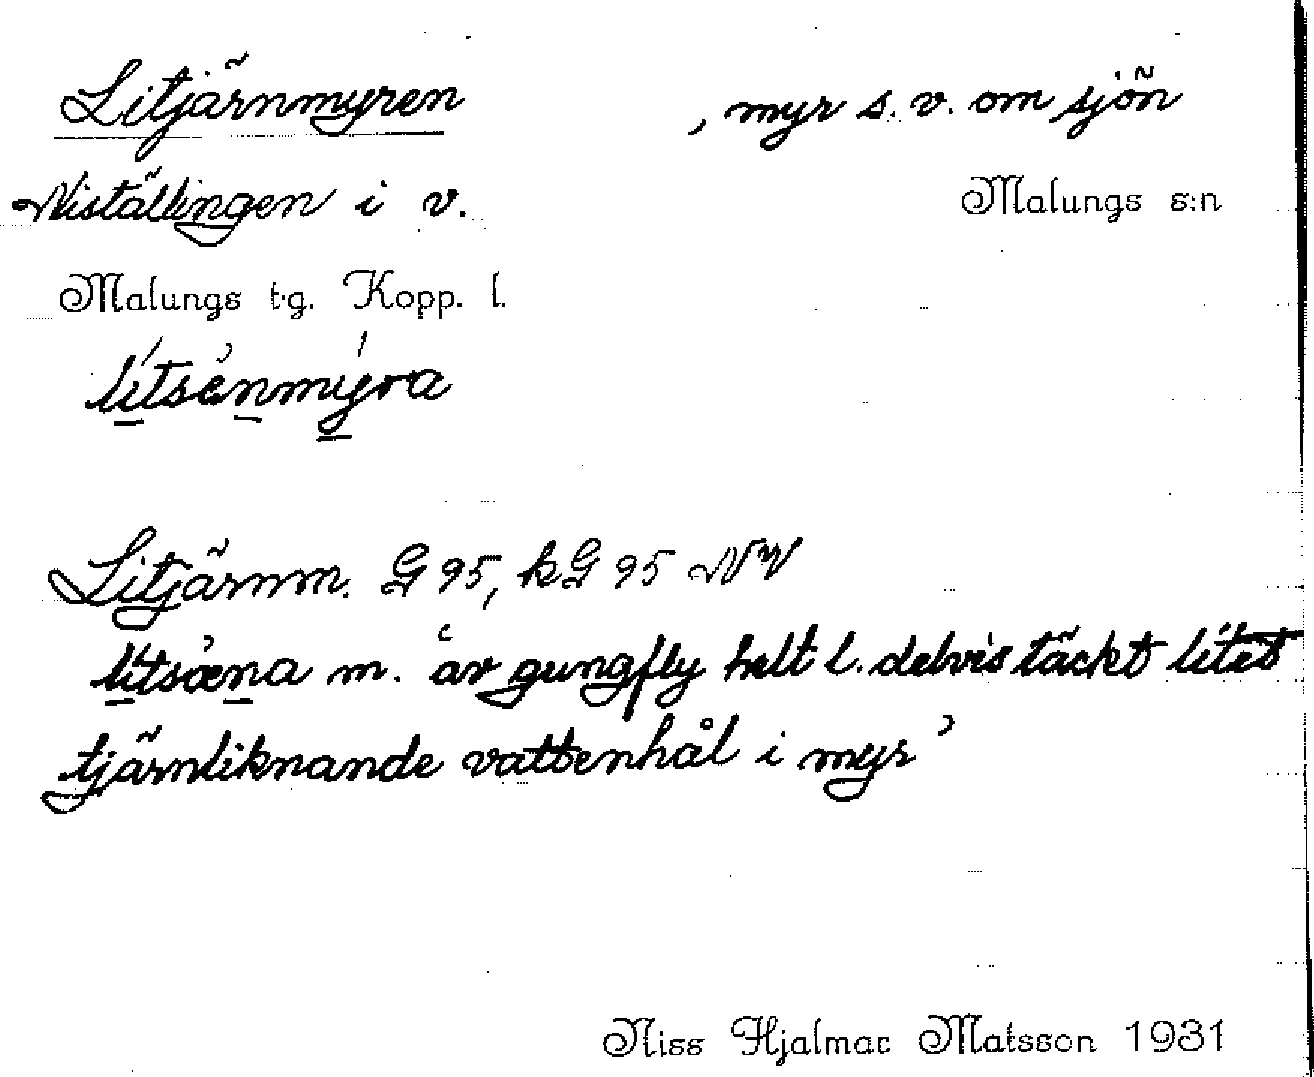 Litjärnmyren , myr s.v. om sjön
Niställingen i v. Malungs s:n
Malungs t.g. Kopp. l.
Litjärnm. G 95, kG 95 NV
m. ʿav gungfly helt l. delvis täckt litet
tjärnliknande vattenhål i myrʾ
Niss Hjalmar Matsson 1931